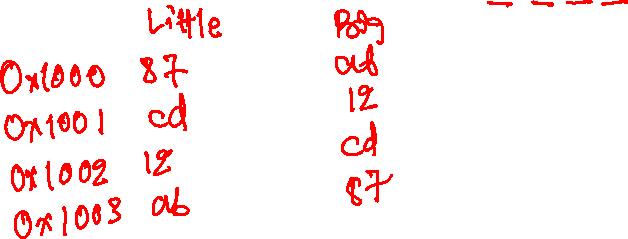 Little Big
0x1000 87 ab
0x1001 cd 12
0x1002 12 cd
0x1003 ab 87